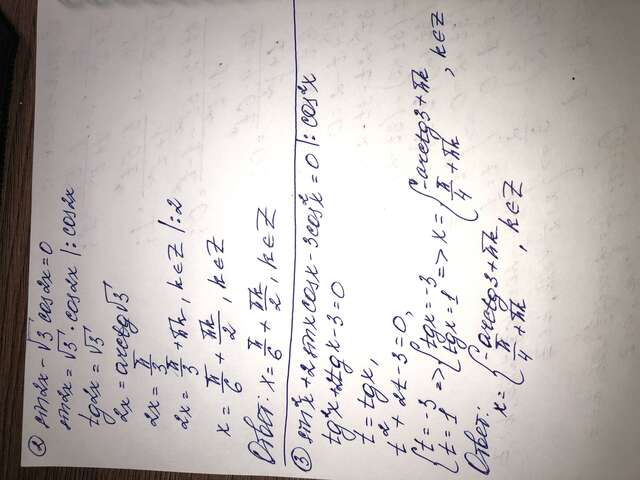 ② sin2x - √3 cos2x = 0
sin2x = √3 · cos2x |: cos2x
tg2x = √3
2x = arctg√3
2x = π/3
2x = π/3 + πk, k∈Z |:2
x = π/6 + πk/2, k∈Z
Ответ: x = π/6 + πk/2, k∈Z
③ sin²x + 2sinxcosx - 3cos²x = 0 |: cos²x
tg²x + 2tgx - 3 = 0
t = tgx,
t² + 2t - 3 = 0,
{t = -3 t = 1 => {tgx = -3 tgx = 1 => x = {-arctg3 + πk π/4 + πk, k∈Z
Ответ:
x = {-arctg3 + πk π/4 + πk, k∈Z